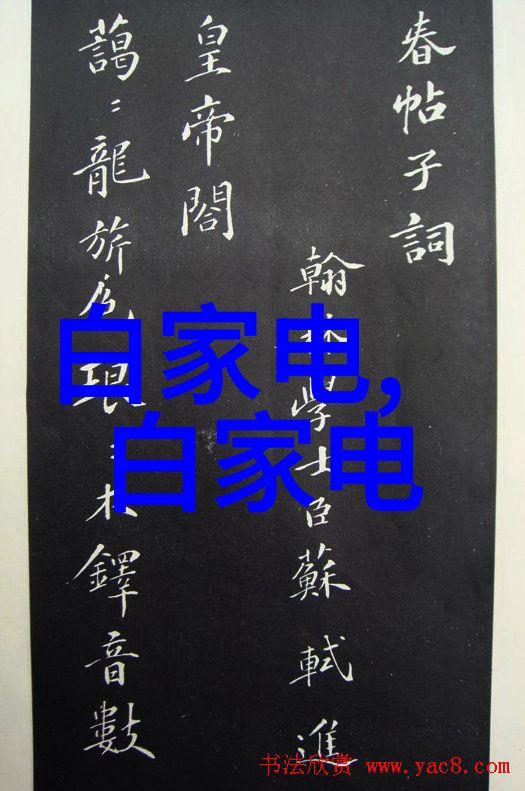 春帖子詞
翰林學士臣蘇軾進
皇帝閤
藹〻龍旂色琅〻木鐸音數
白家电,
白家电
书法欣赏 www.yac8.com